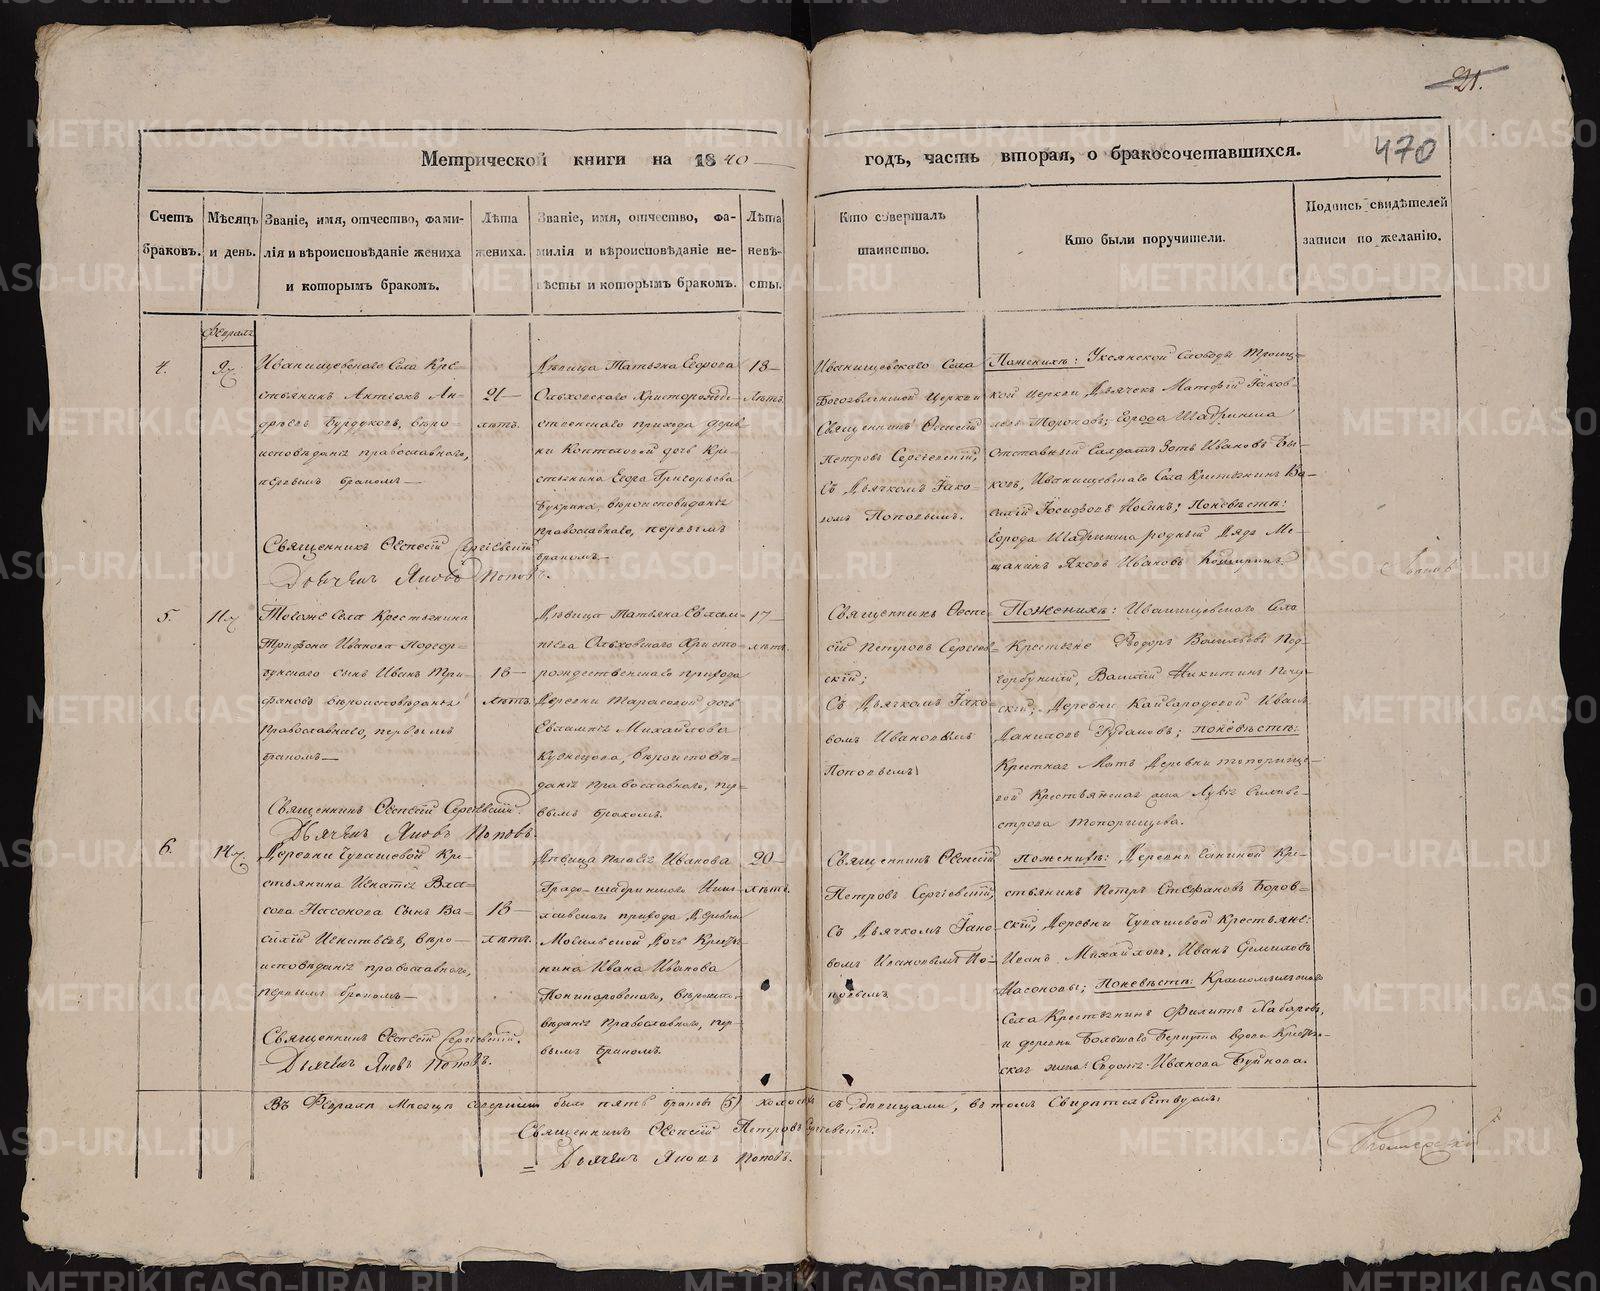 21.
470
Метрической книги на 1840
годъ, часть вторая, о бракосочетавшихся.
Счетъ браковъ.
Мѣсяцъ и день.
Званіе, имя, отчество, фами-
лія и вѣроисповѣданіе жениха
и которымъ бракомъ.
Лѣта
жениха.
Званіе, имя, отчество, фа-
милія и вѣроисповѣданіе не-
вѣсты и которымъ бракомъ.
Лѣта
невѣ-
сты.
Кто совершалъ
таинство.
Кто были поручители.
Подпись свидѣтелей
записи по желанію.
Февраль
4.
9
Иванищевскаго Села Кре-
стьянинъ Антіохъ Ан-
дрѣевъ Бурдуковъ, вѣро-
исповѣданія православнаго,
первымъ бракомъ
21
лѣтъ.
Дѣвица Татьяна Егорова
Ольховскаго Христорожде-
ственскаго прихода дерев
ни Коптеловой дочь Кре-
стьянина Егора Григорьева
Букрина, вѣроисповѣданія
православнаго, первымъ
бракомъ
18
Лѣтъ
Иванищевскаго Села
Богоявленской Церкви
Священникъ Евсевій
Петровъ Сергіевскій,
Съ Дьячкомъ Іако-
вомъ Поповымъ.
По женихѣ: Уксянской Слободы Троиц-
кой церкви Дьячекъ Матфій Іаков-
левъ Топорковъ; города Шадринска
Отставный Солдатъ Зотъ Ивановъ Бы-
ковъ, Иванищевскаго Села Крестьянинъ Ва-
силій Іосифовъ Носинъ; По невѣстѣ:
города Шадринска родный Дядя Ме-
щанинъ Яковъ Ивановъ
Священникъ Евсевій Сергіевскій
Дьячекъ Яковъ Поповъ.
5.
11
Тогоже Села Крестьянина
Трифона Иванова Подгор-
бунскаго сынъ Иванъ Три-
фановъ вѣроисповѣданія
Православнаго, первымъ
бракомъ
18
лѣтъ.
Дѣвица Татьяна Евлам-
піева Ольховскаго Христо-
рождественскаго прихода
Деревни Тарасовой дочь
Евлампія Михайлова
Кузнецова, вѣроисповѣ-
данія православнаго, пер-
вымъ бракомъ.
17
лѣтъ
Священникъ Евсе-
вій Петровъ Сергіев-
скій;
Съ Дьячкомъ Іако-
вомъ Ивановымъ
Поповымъ
По женихѣ: Иванищевскаго Села
Крестьяне Ѳедоръ Васильевъ Под-
горбунскій, Василій Никитинъ Печу-
скій; Деревни Кайгородовой Иванъ
Даниловъ Рубановъ; по невѣстѣ:
Крестная Мать Деревни топорище-
вой Крестьянская жена Лукія Сильве-
строва Топорищева.
Священникъ Евсевій Сергіевскій.
Дьячекъ Яковъ Поповъ.
6.
14
Деревни Чувашевой Кре-
стьянина Игнатія Вла-
сова Насонова Сынъ Ва-
силій Игнатьевъ, вѣро-
исповѣданія православнаго,
первымъ бракомъ
18
лѣтъ.
Дѣвица Пелагія Иванова
Градо-шадринскаго Нико-
лаевскаго прихода Деревни
Мокильской Дочь Крестья-
нина Ивана Иванова
Пономаровскаго, вѣроиспо-
вѣданія Православнаго, пер-
вымъ бракомъ.
20
лѣтъ.
Священникъ Евсевій
Петровъ Сергіевскій,
Съ Дьячкомъ Іако-
вомъ Ивановымъ По-
повымъ
По женихѣ: Деревни Саниной Кре-
стьянинъ Петръ Стефановъ Боров-
скій, Деревни Чувашевой Крестьяне:
Иванъ Михайловъ, Иванъ Емиловъ
Насоновы; По невѣстѣ: Крестомыльскаго
Села Крестьянинъ Филиппъ Хабаровъ,
и деревни Большаго Беркута вдова Крестьян-
ская жена Евдокія Иванова Буйнова.
Священникъ Евсевій Сергіевскій.
Дьячекъ Яковъ Поповъ.
Въ Февралѣ Мѣсяцѣ совершено было пять браковъ (5) холостыхъ съ Дѣвицами, въ томъ Свидѣтельствуемъ:
Священникъ Евсевій Петровъ Сергіевскій.
Дьячекъ Яковъ Поповъ.
METRIKI.GASO-URAL.RU